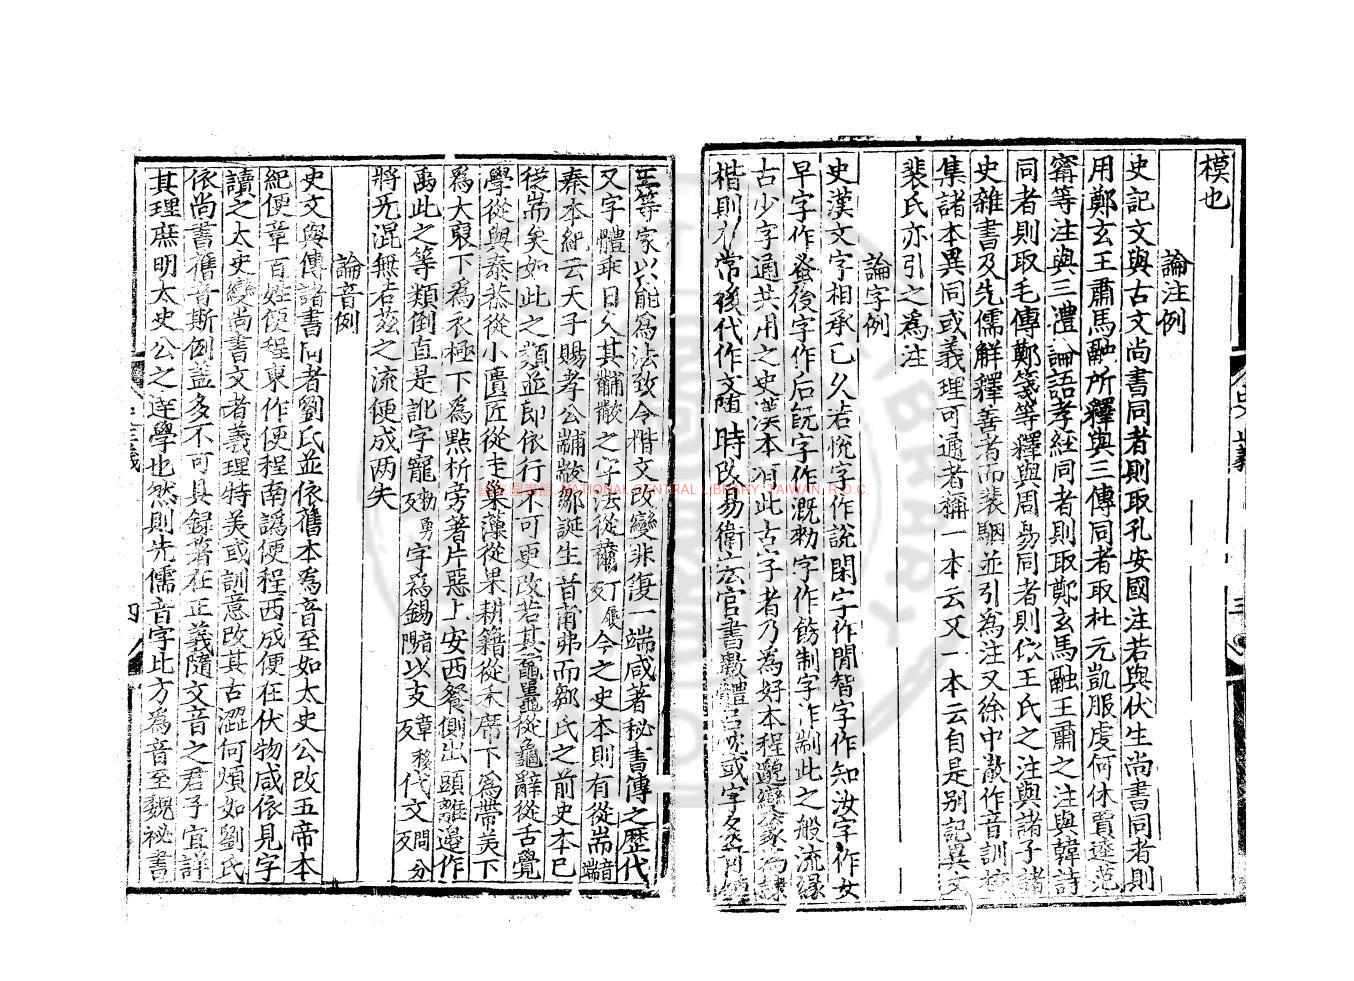 模也
論注例
史記文與古文尚書同者則取孔安國注若與伏生尚書同者則
用鄭玄王肅馬融所釋與三傳同者取杜元凱服虔何休賈逵范
甯等注與三禮論語孝經同者則取鄭玄馬融王肅之注與韓詩
同者則取毛傳鄭箋等釋與周易同者則依王氏之注與諸子諸
史雜書及先儒解釋善者而裴駰並引為注又徐中散作音訓校
集諸本異同或義理可通者稱一本云又一本云自是別記異文
裴氏亦引之為注
論字例
史漢文字相承已久若悅字作說閑字作閒智字作知汝字作女
早字作蚤後字作后既字作溉勑字作飭制字作制此之般流緣
古少字通共用之史漢本有此古字者乃為好本程邈變篆為隸
楷則有常後代作文隨時改易衛宏官書數體呂忱或字多奇鍾
王等家以能為法致令楷文改變非復一端咸著秘書傳之歷代
又字體乖日久其黼黻之字法從黹丁履反今之史本則有從耑音端
秦本紀云天子賜孝公黼黻鄒誕生音甫弗而鄒氏之前史本已
從耑矣如此之類並即依行不可更改若其黿鼉從龜辭從舌覺
學從與泰恭從小匱匠從走巢藻從果耕籍從禾席下為帶美下
為大裏下為衣極下為點析旁著片惡上安西餐側出頭離邊作
禹此之等類例直是訛字寵勑勇反字為錫音陽以支章移反代文問分反
將旡混無若茲之流便成两失
論音例
史文與傳諸書同者劉氏並依舊本為音至如太史公改五帝本
紀便章百姓便程東作便程南譌便程西成便在伏物咸依見字
讀之太史變尚書文者義理特美或訓意改其古澀何煩如劉氏
依尚書舊音斯例蓋多不可具録著在正義隨文音之君子宜詳
其理庶明太史公之達學也然則先儒音字比方為音至魏祕書
史正義
三
四
國家圖書館 NATIONAL CENTRAL LIBRARY, TAIWAN, R.O.C.